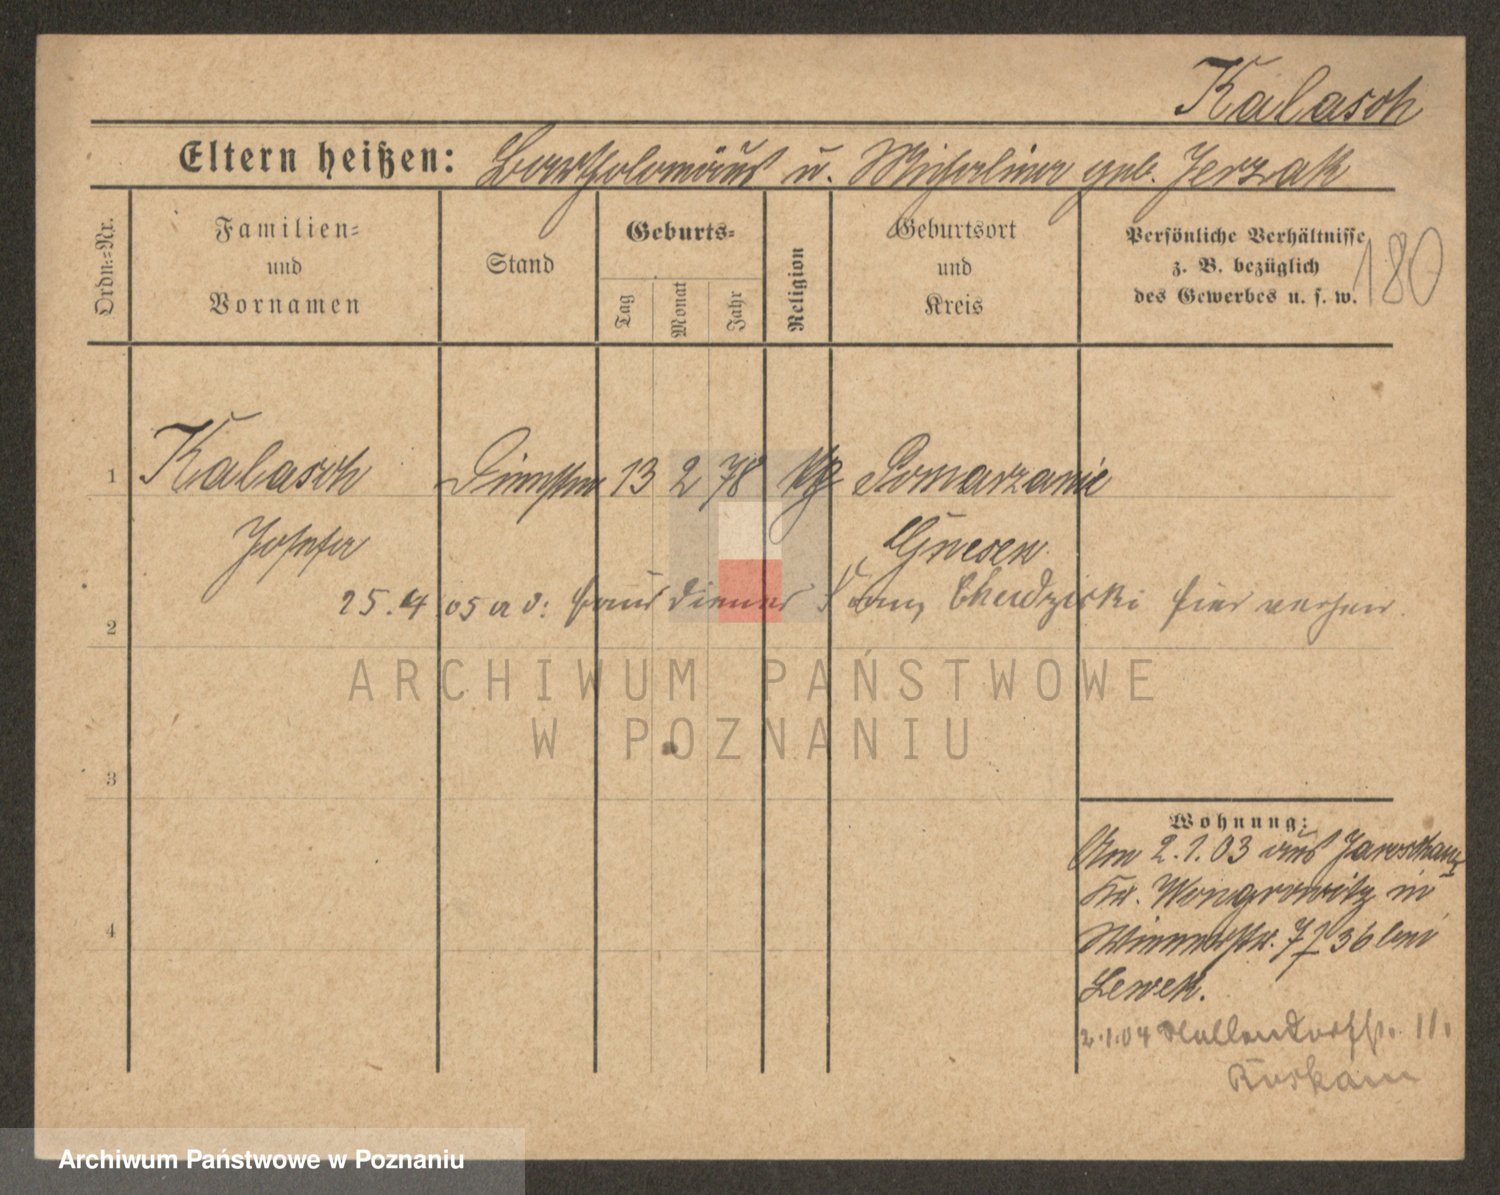 Kalasch
Eltern heißen: Bartholomäus u. Michalina geb. Jerzak
Ordn.-Nr.
Familien-
und
Vornamen
Stand
Geburts-
Tag
Monat
Jahr
Religion
Geburtsort
und
Kreis
Persönliche Verhältnisse
z. B. bezüglich
des Gewerbes u. s. w.
180
1 Kalasch Dienstm 13 2 78 Pomarzanie
Josefa Gnesen
25.4 05 a d: Diener Franz Chudzicki hier
2
ARCHIWUM PAŃSTWOWE
W POZNANIU
3
Wohnung:
Am 2.1.03 aus Jaroschau
Kr. Wongrowitz in
4
36 bei
Lewek.
2.1.04 11.
Archiwum Państwowe w Poznaniu